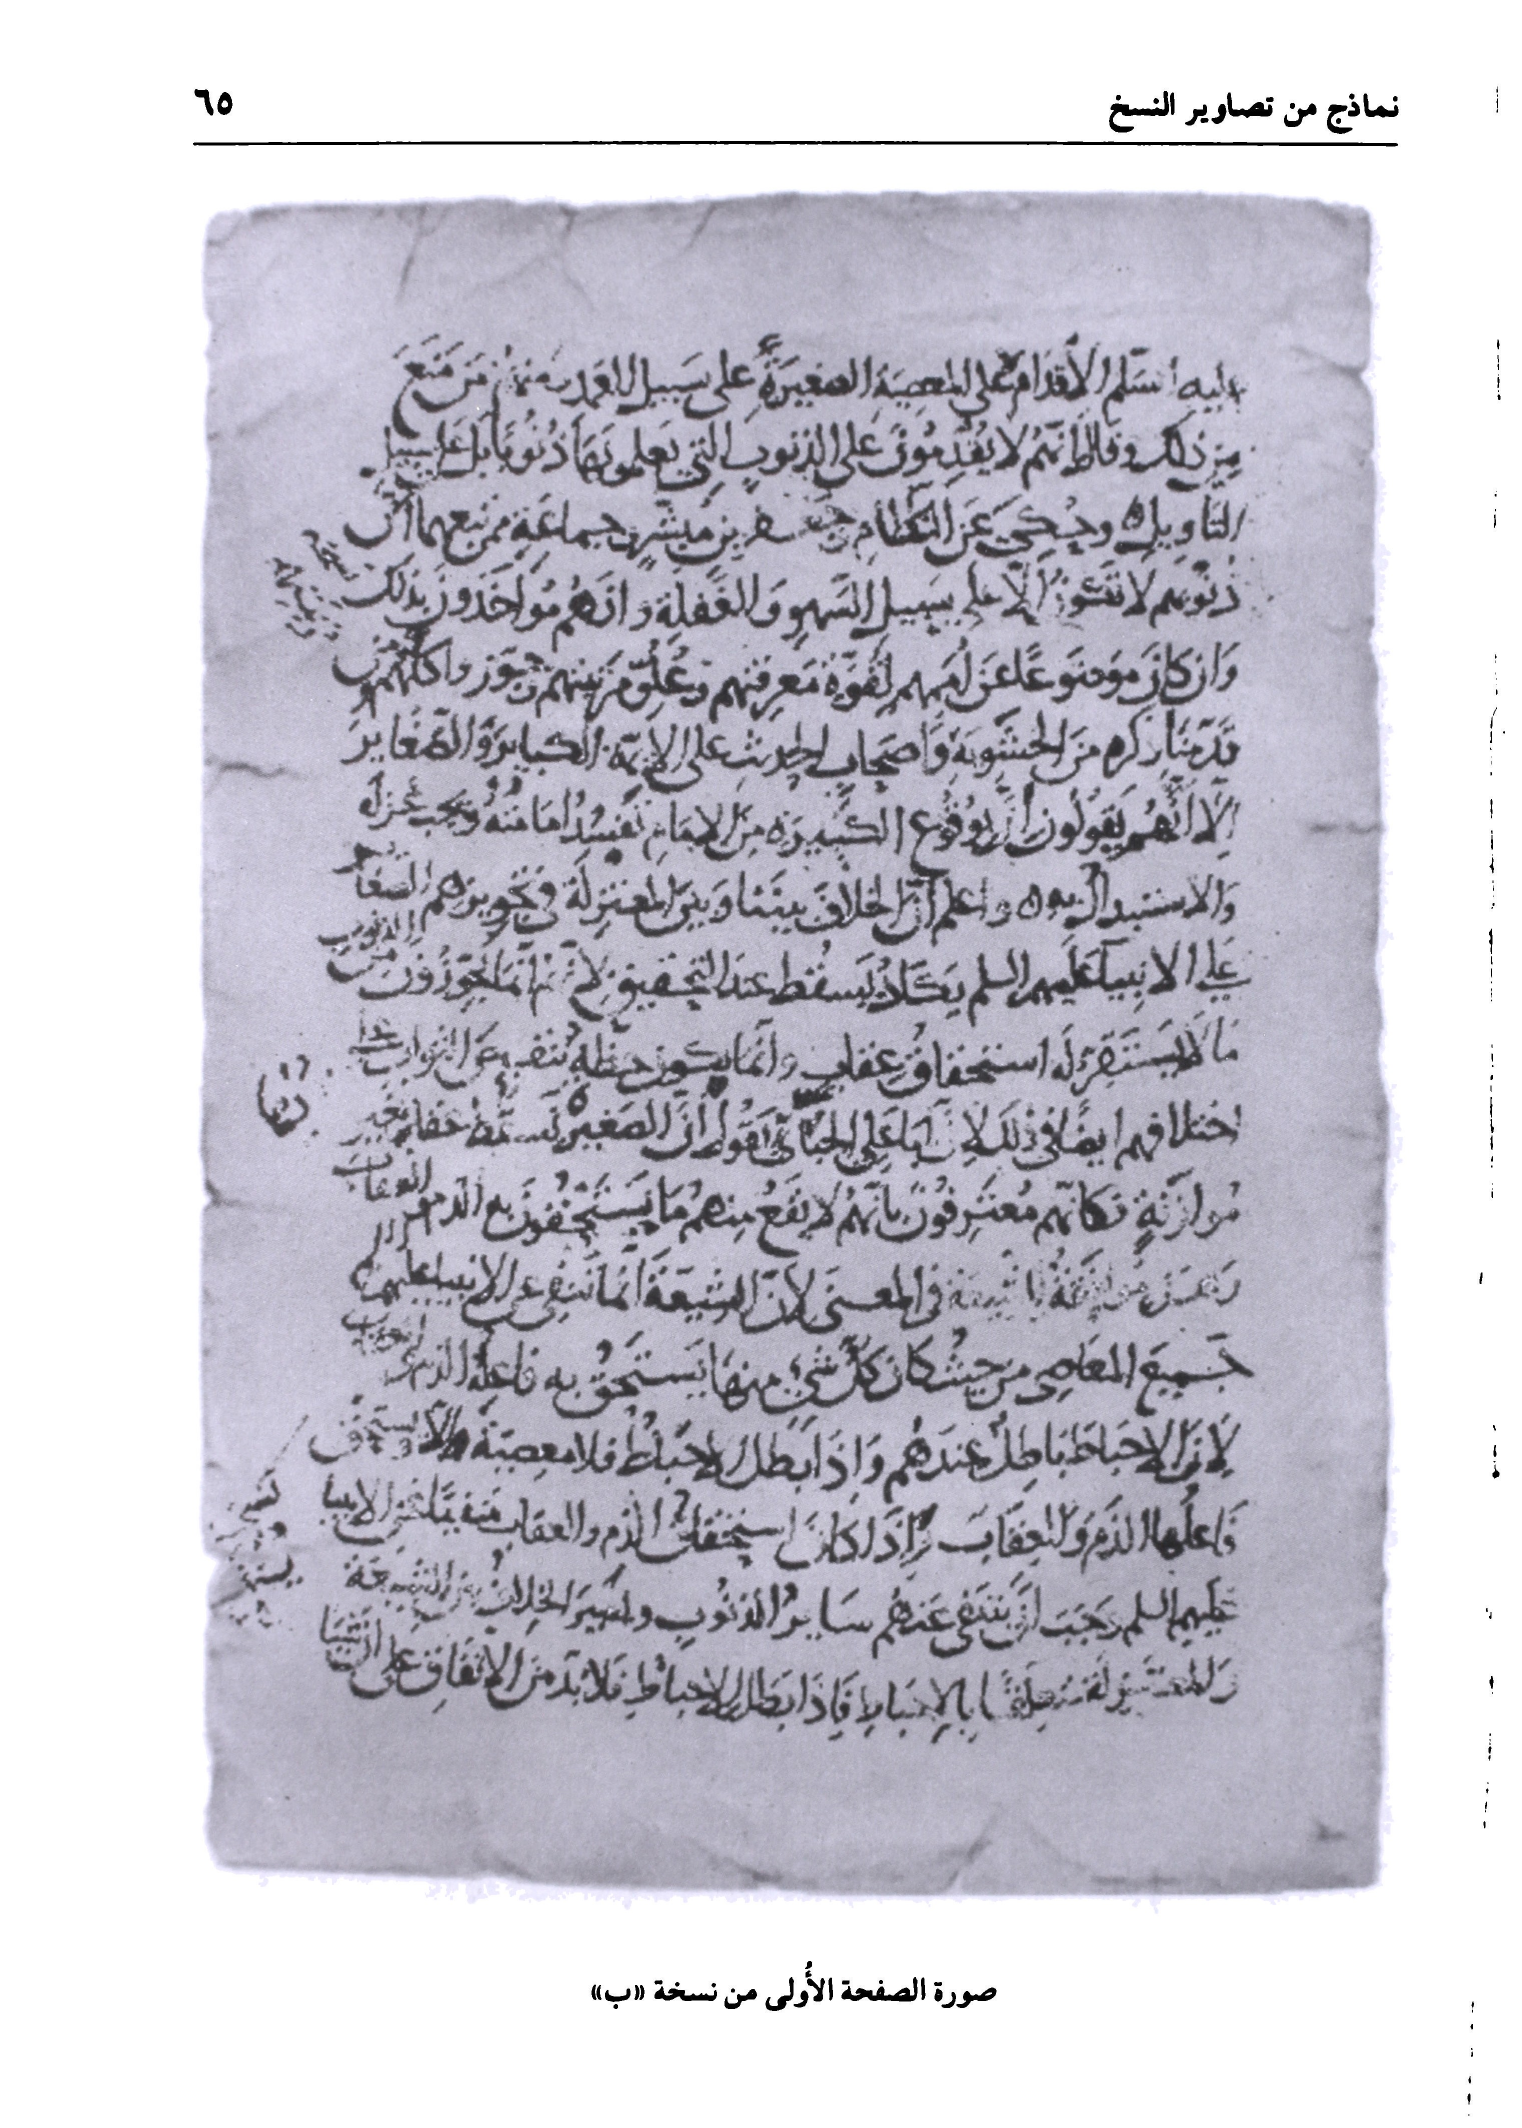 نماذج من تصاوير النسخ
٦٥
عليه السلم الاقدام على المعصية الصغيرة على سبيل العمد ومنهم من منع
من ذلك وقال انهم لا يقدمون على الذنوب التي يعلمونها ذنوبا بل على سبيل
التاويل وحكي عن النظام وجعفر بن مبشر وجماعة ممن تبعهما ان
ذنوبهم لا تكون الا على سبيل السهو والغفلة وانهم مواخذون بذلك
وان كان موضوعا عن اممهم لقوة معرفتهم وعلو مرتبتهم وجوزوا كلهم ومن
قدمنا ذكره من الحشوية واصحاب الحديث على الايمة الكباير والصغاير
الا انهم يقولون ان بوقوع الكبيرة من الامام تفسد امامته ويجب عزله
والاستبدال به واعلم ان الخلاف بيننا وبين المعتزلة في تجويزهم الصغاير
على الانبيا عليهم السلم يكاد يسقط عند التحقيق لانهم انما يجوزون من الذنوب
ما لا يستقر له استحقاق عقاب وانما يكون حظه تنقيص الثواب على
اختلافهم ايضا في ذلك لان ابا علي الجبائي يقول ان الصغير يسقط عقابه بغير
موازنة فكانهم معترفون بانهم لا يقع منهم ما يستحقون به الذم والعقاب
وهذه موافقة للشيعة في المعنى لان الشيعة انما تنفي عن الانبيا عليهم
جميع المعاصي من حيث كان كل شي منها يستحق به فاعله الذم والعقاب
لان الاحباط باطل عندهم واذا بطل الاحباط فلا معصية الا ويستحق
فاعلها الذم والعقاب واذا كان استحقاق الذم والعقاب منفيا عن الانبيا
عليهم السلم وجب ان تنتفي عنهم ساير الذنوب ويصير الخلاف بين الشيعة
والمعتزلة متعلقا بالاحباط فاذا بطل الاحباط فلا بد من الاتفاق على ان شيا
صورة الصفحة الأُولى من نسخة «ب»